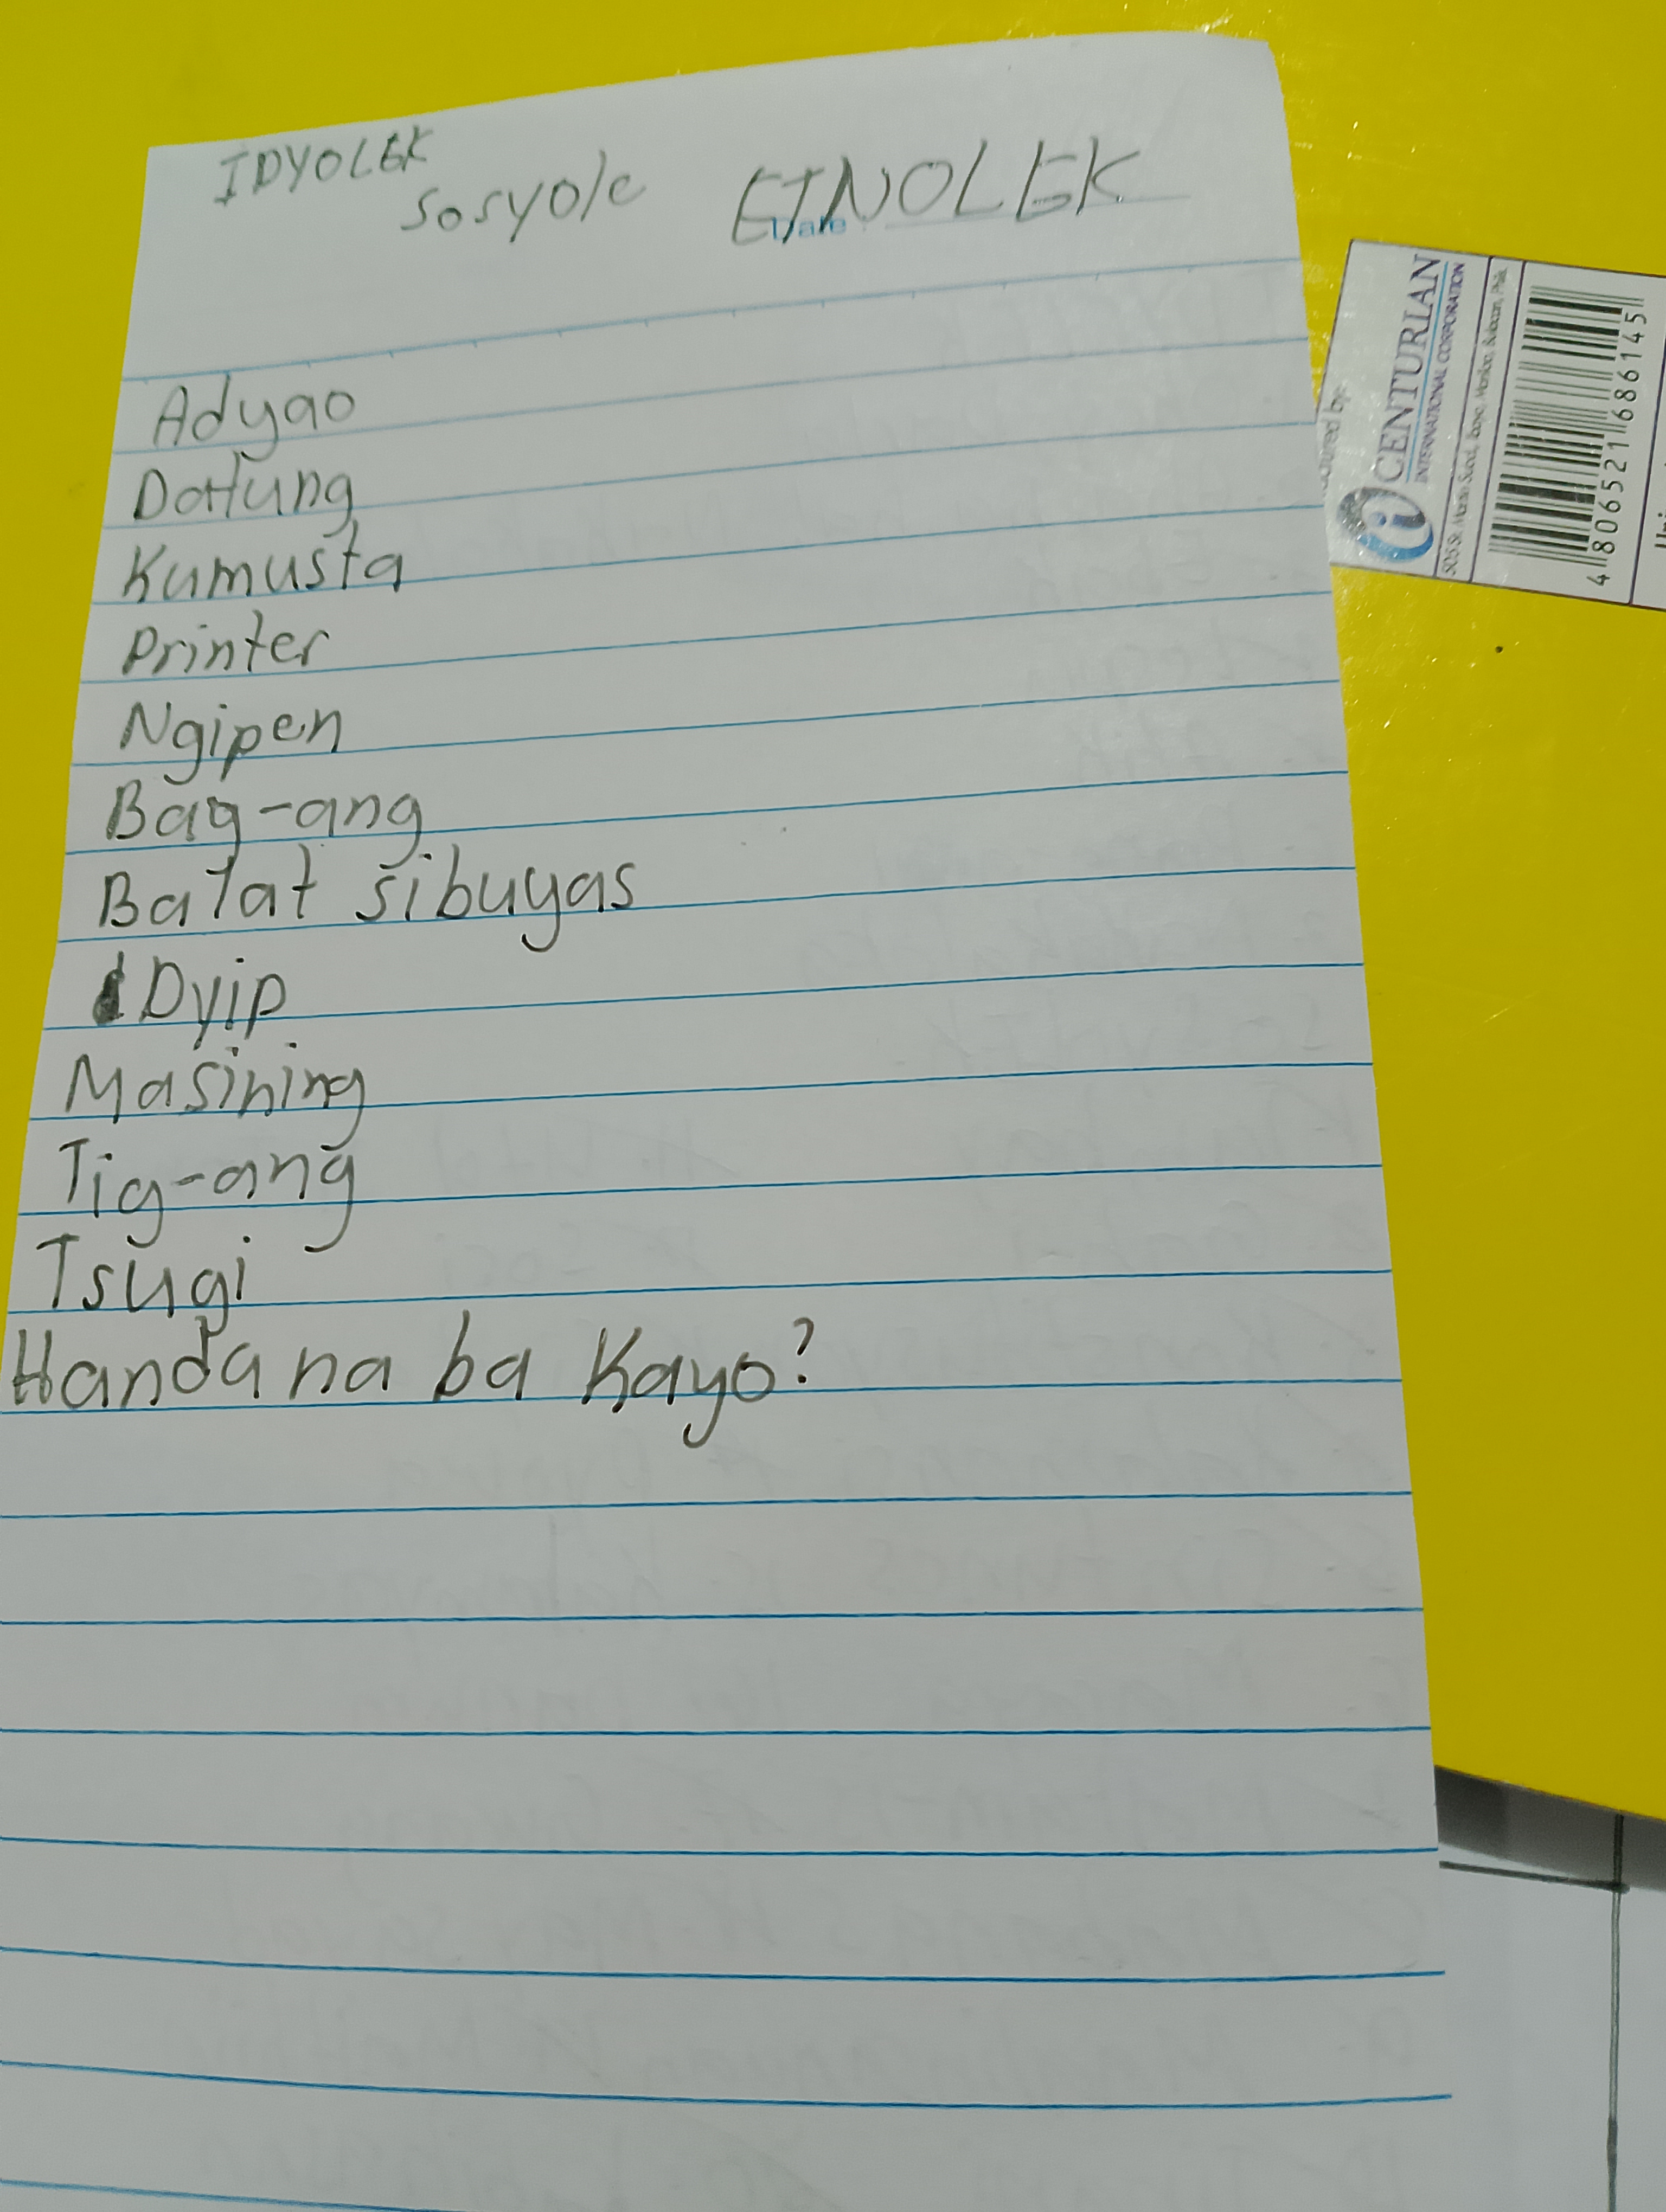 IDYOLEK
sosyole
ETNOLEK
Date
Adyao
Dattung
Kumusta
Printer
Ngipen
Bag-ang
Balat sibuyas
Dyip
Masining
Tig-ang
Tsugi
Handa na ba Kayo?
ctured by:
CENTURIAN
INTERNATIONAL CORPORATION
4 806521 686145